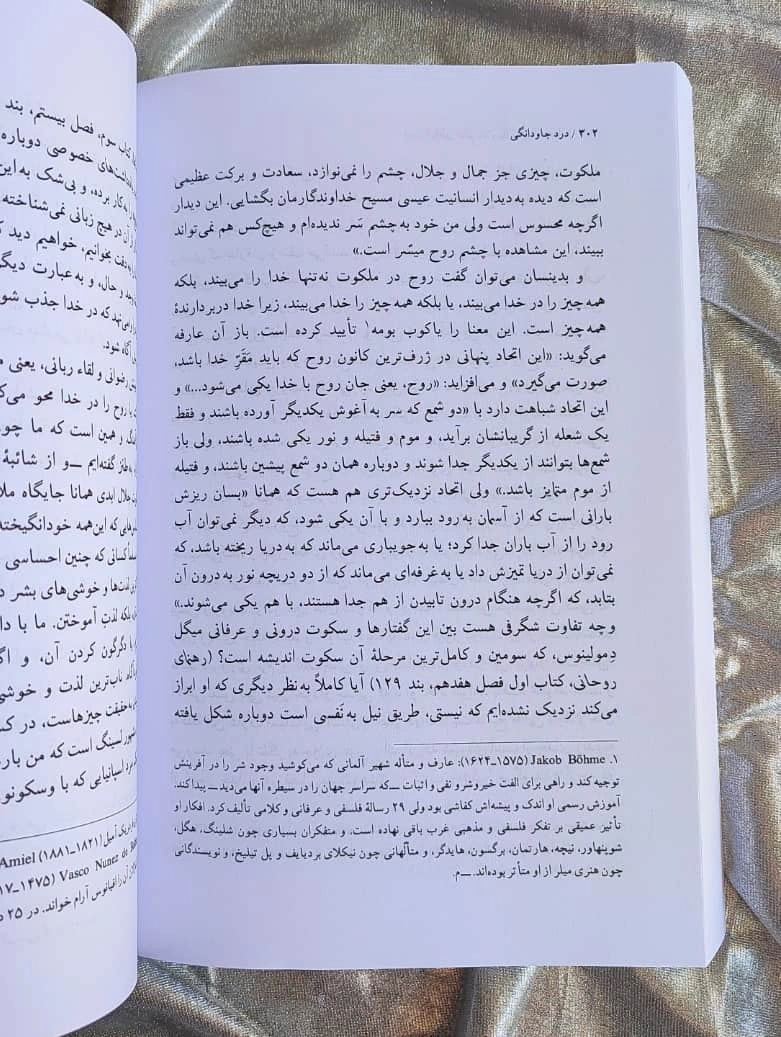 ۳۰۲ / درد جاودانگی
ملکوت، چیزی جز جمال و جلال، چشم را نمی‌نوازد، سعادت و برکت عظیمی
است که دیده به دیدار انسانیت عیسی مسیح خداوندگارمان بگشایی. این دیدار
اگرچه محسوس است ولی من خود به چشم سَر ندیده‌ام و هیچ‌کس هم نمی‌تواند
ببیند، این مشاهده با چشم روح میسّر است.»
و بدینسان می‌توان گفت روح در ملکوت نه‌تنها خدا را می‌بیند، بلکه
همه‌چیز را در خدا می‌بیند، یا بلکه همه‌چیز را خدا می‌بیند، زیرا خدا دربردارندهٔ
همه‌چیز است. این معنا را یاکوب بومه۱ تأیید کرده است. باز آن عارفه
می‌گوید: «این اتحاد پنهانی در ژرف‌ترین کانون روح که باید مَقَرِّ خدا باشد،
صورت می‌گیرد» و می‌افزاید: «روح، یعنی جان روح با خدا یکی می‌شود...» و
این اتحاد شباهت دارد با «دو شمع که سر به آغوش یکدیگر آورده باشند و فقط
یک شعله از گریبانشان برآید، و موم و فتیله و نور یکی شده باشند، ولی باز
شمع‌ها بتوانند از یکدیگر جدا شوند و دوباره همان دو شمع پیشین باشند، و فتیله
از موم متمایز باشد.» ولی اتحاد نزدیک‌تری هم هست که همانا «بسان ریزش
بارانی است که از آسمان به رود ببارد و با آن یکی شود، که دیگر نمی‌توان آب
رود را از آب باران جدا کرد؛ یا به جویباری می‌ماند که به دریا ریخته باشد، که
نمی‌توان از دریا تمیزش داد یا به غرفه‌ای می‌ماند که از دو دریچه نور به درون آن
بتابد، که اگرچه هنگام درون تابیدن از هم جدا هستند، با هم یکی می‌شوند.»
وچه تفاوت شگرفی هست بین این گفتارها و سکوت درونی و عرفانی میگل
دِمولینوس، که سومین و کامل‌ترین مرحلهٔ آن سکوت اندیشه است؟ (رهنمای
روحانی، کتاب اول فصل هفدهم، بند ۱۲۹) آیا کاملاً به‌نظر دیگری که او ابراز
می‌کند نزدیک نشده‌ایم که نیستی، طریق نیل به نَفسی است دوباره شکل یافته
۱. Jakob Böhme (۱۵۷۵-۱۶۲۴): عارف و متأله شهیر آلمانی که می‌کوشید وجود شر را در آفرینش
توجیه کند و راهی برای الفت خیروشر و نفی و اثبات ــ که سراسر جهان را در سیطره آنها می‌دید ــ پیدا کند.
آموزش رسمی او اندک و پیشه‌اش کفاشی بود ولی ۲۹ رسالهٔ فلسفی و عرفانی و کلامی تألیف کرد. افکار او
تأثیر عمیقی بر تفکر فلسفی و مذهبی غرب باقی نهاده است. و متفکران بسیاری چون شلینگ، هگل،
شوپنهاور، نیچه، هارتمان، برگسون، هایدگر، و متألهانی چون نیکلای بردیایف و پل تیلیخ، و نویسندگانی
چون هنری میلر از او متأثر بوده‌اند. ــ م.
کتاب سوم، فصل بیستم، بند
خصوصی دوباره
به‌کار برده، و بی‌شک به این
آن در هیچ زبانی نمی‌شناخته
بخوانیم، خواهیم دید ک
و حال، و به عبارت دیگ
که در خدا جذب شو
آگاه شود.
رضوانی و لقاء ربانی، یعنی م
روح را در خدا محو می‌ک
و همین است که ما چو
گفته‌ایم ــ و از شائبهٔ
جلال ابدی همانا جایگاه ملا
که این‌همه خودانگیخته
کسانی که چنین احساسی
و خوشی‌های بشر د
بلکه لذت آموختن. ما با دا
دگرگون کردن آن، و اگ
ناب‌ترین لذت و خوشی
به حقیقت چیزهاست، در ک
لسینگ است که من بار
اسپانیایی که با وسکونو
آمیل (۱۸۲۱-۱۸۸۱) Amiel
Vasco Nunez de (۱۴۷۵-۱۷
آن را اقیانوس آرام خواند. در ۲۵